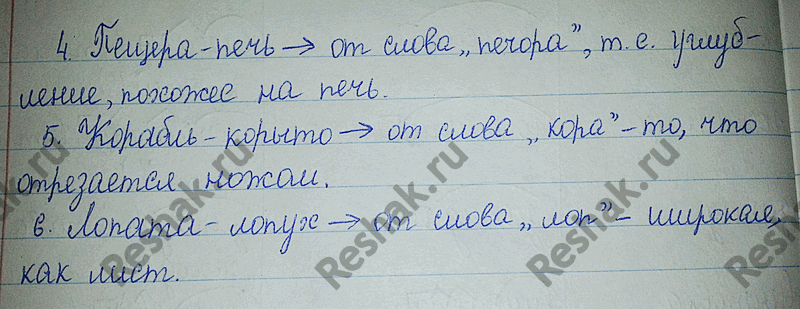 4. Пещера - печь → от слова „печора”, т.е. углуб-
ление, похожее на печь.
5. Корабль - корыто → от слова „кора” - то, что
отрезается ножом.
6. Лопата - лопух → от слова „лоп” - широкая,
как лист.
Reshak.ru
Reshak.ru
Reshak.ru
Reshak.ru